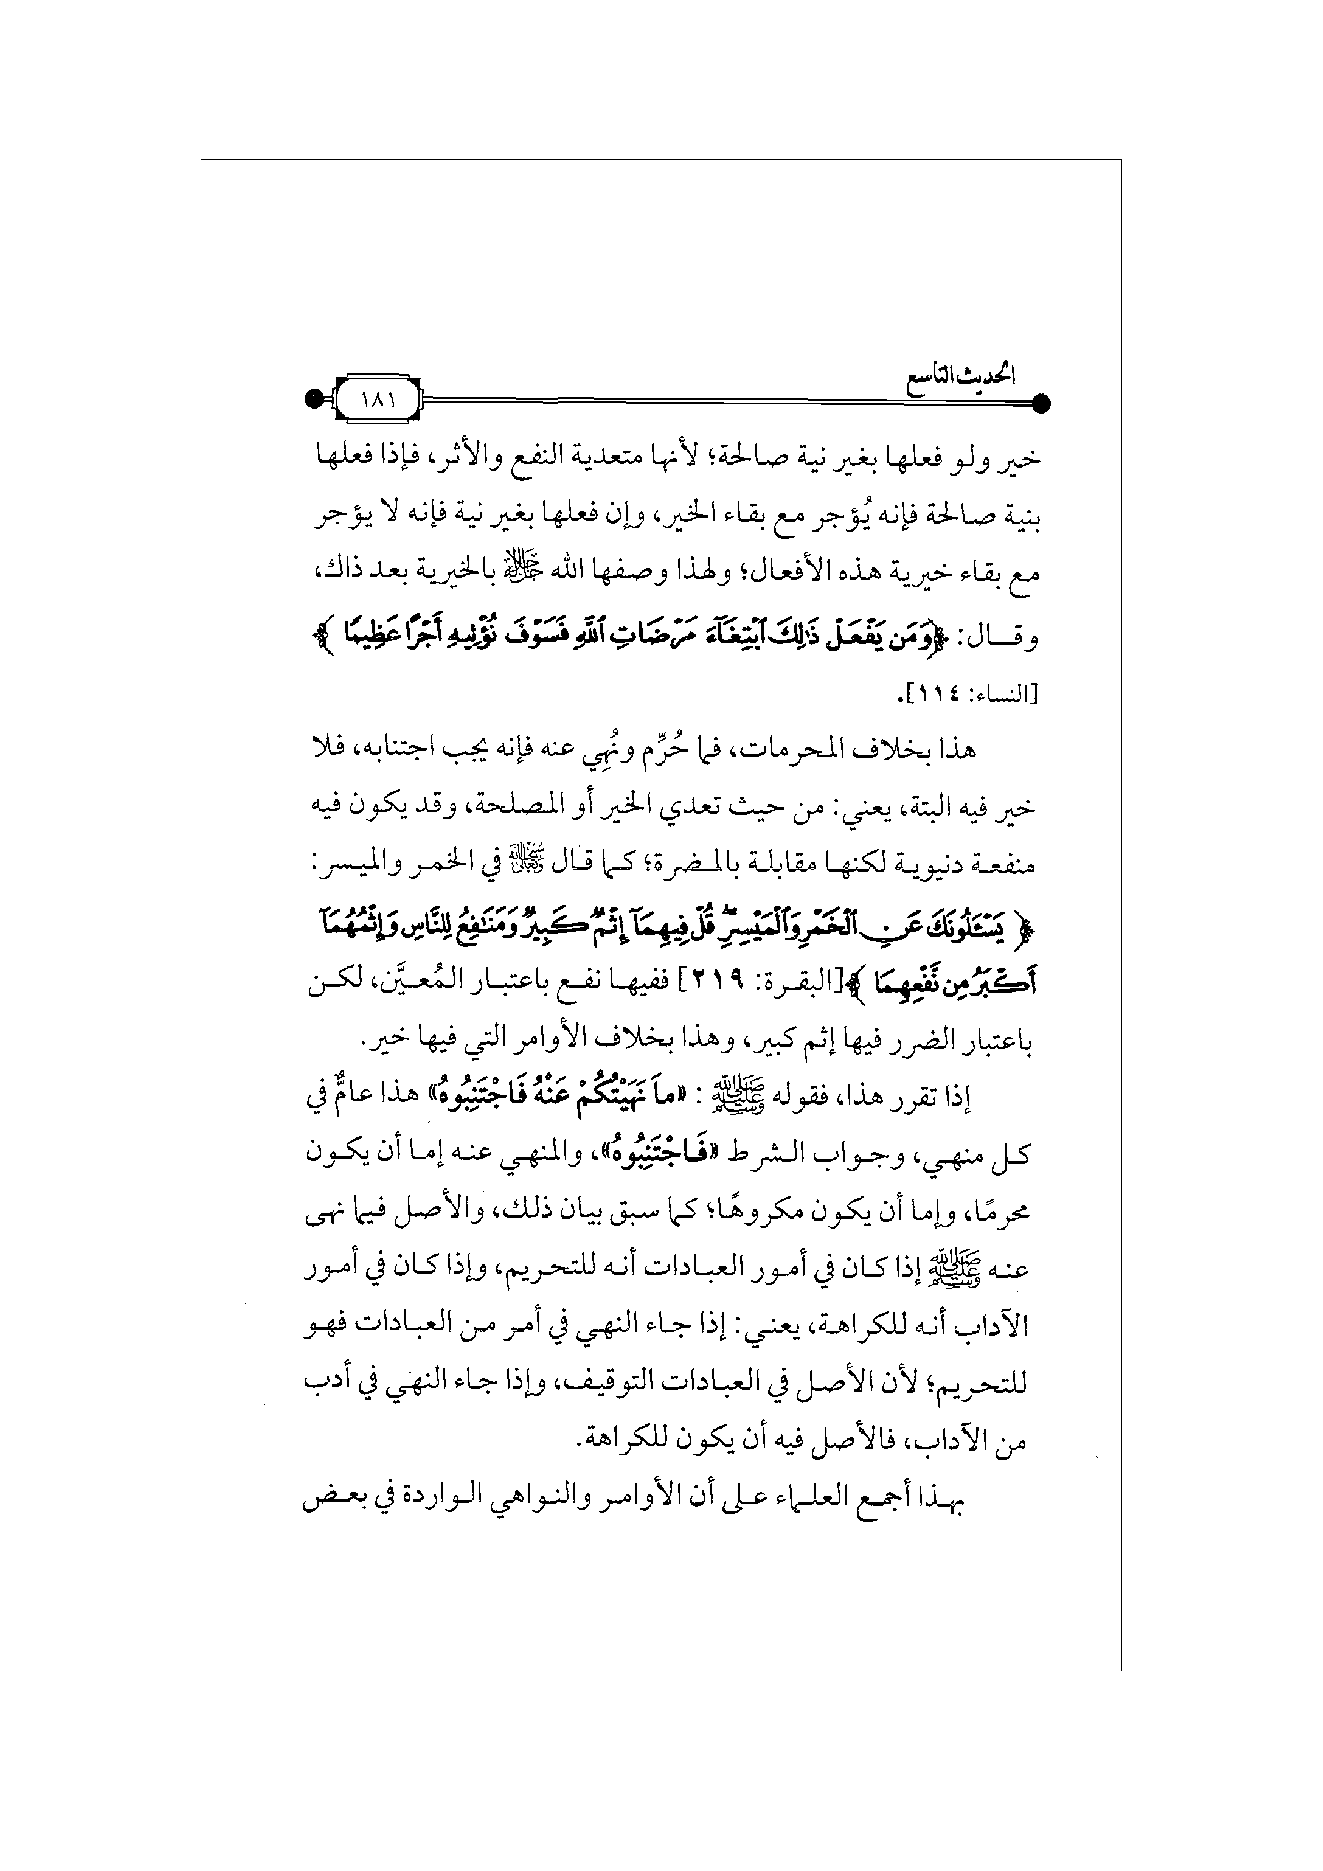 الحديث التاسع
١٨١
خير ولو فعلها بغير نية صالحة؛ لأنها متعدية النفع والأثر، فإذا فعلها
بنية صالحة فإنه يُؤجر مع بقاء الخير، وإن فعلها بغير نية فإنه لا يؤجر
مع بقاء خيرية هذه الأفعال؛ ولهذا وصفها الله ﷻ بالخيرية بعد ذاك،
وقال: ﴿وَمَن يَفْعَلْ ذَٰلِكَ ٱبْتِغَآءَ مَرْضَاتِ ٱللَّهِ فَسَوْفَ نُؤْتِيهِ أَجْرًا عَظِيمًا﴾
[النساء: ١١٤].
هذا بخلاف المحرمات، فما حُرِّم ونُهِي عنه فإنه يجب اجتنابه، فلا
خير فيه البتة، يعني: من حيث تعدي الخير أو المصلحة، وقد يكون فيه
منفعة دنيوية لكنها مقابلة بالمضرة؛ كما قال ﷾ في الخمر والميسر:
﴿يَسْـَٔلُونَكَ عَنِ ٱلْخَمْرِ وَٱلْمَيْسِرِ ۖ قُلْ فِيهِمَآ إِثْمٌ كَبِيرٌ وَمَنَٰفِعُ لِلنَّاسِ وَإِثْمُهُمَآ
أَكْبَرُ مِن نَّفْعِهِمَا﴾[البقرة: ٢١٩] ففيها نفع باعتبار المُعيَّن، لكن
باعتبار الضرر فيها إثم كبير، وهذا بخلاف الأوامر التي فيها خير.
إذا تقرر هذا، فقوله ﷺ : «مَا نَهَيْتُكُمْ عَنْهُ فَاجْتَنِبُوهُ» هذا عامٌّ في
كل منهي، وجواب الشرط «فَاجْتَنِبُوهُ»، والمنهي عنه إما أن يكون
محرمًا، وإما أن يكون مكروهًا؛ كما سبق بيان ذلك، والأصل فيما نهى
عنه ﷺ إذا كان في أمور العبادات أنه للتحريم، وإذا كان في أمور
الآداب أنه للكراهة، يعني: إذا جاء النهي في أمر من العبادات فهو
للتحريم؛ لأن الأصل في العبادات التوقيف، وإذا جاء النهي في أدب
من الآداب، فالأصل فيه أن يكون للكراهة.
بهذا أجمع العلماء على أن الأوامر والنواهي الواردة في بعض